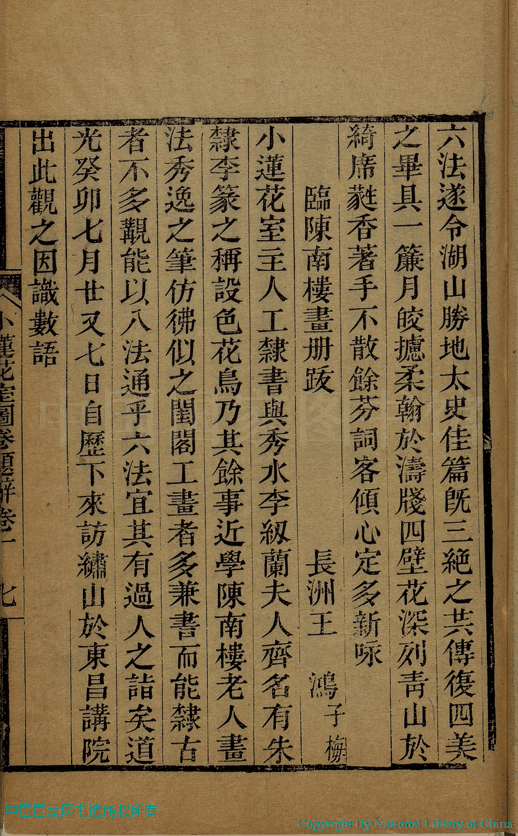 六法遂令湖山勝地太史佳篇既三絶之共傳復四美
之畢具一簾月皎攄柔翰於濤牋四壁花深列青山於
綺席蕤香著手不散餘芬詞客傾心定多新咏
臨陳南樓畫册跋 長洲王 鴻子梅
小蓮花室主人工隸書與秀水李紉蘭夫人齊名有朱
隸李篆之稱設色花鳥乃其餘事近學陳南樓老人畫
法秀逸之筆仿彿似之閨閣工畫者多兼書而能隸古
者不多覯能以八法通乎六法宜其有過人之詣矣道
光癸卯七月廿又七日自歷下來訪繡山於東昌講院
出此觀之因識數語
小蓮花室圖卷題辭卷二 七
Copyright by National Library of China